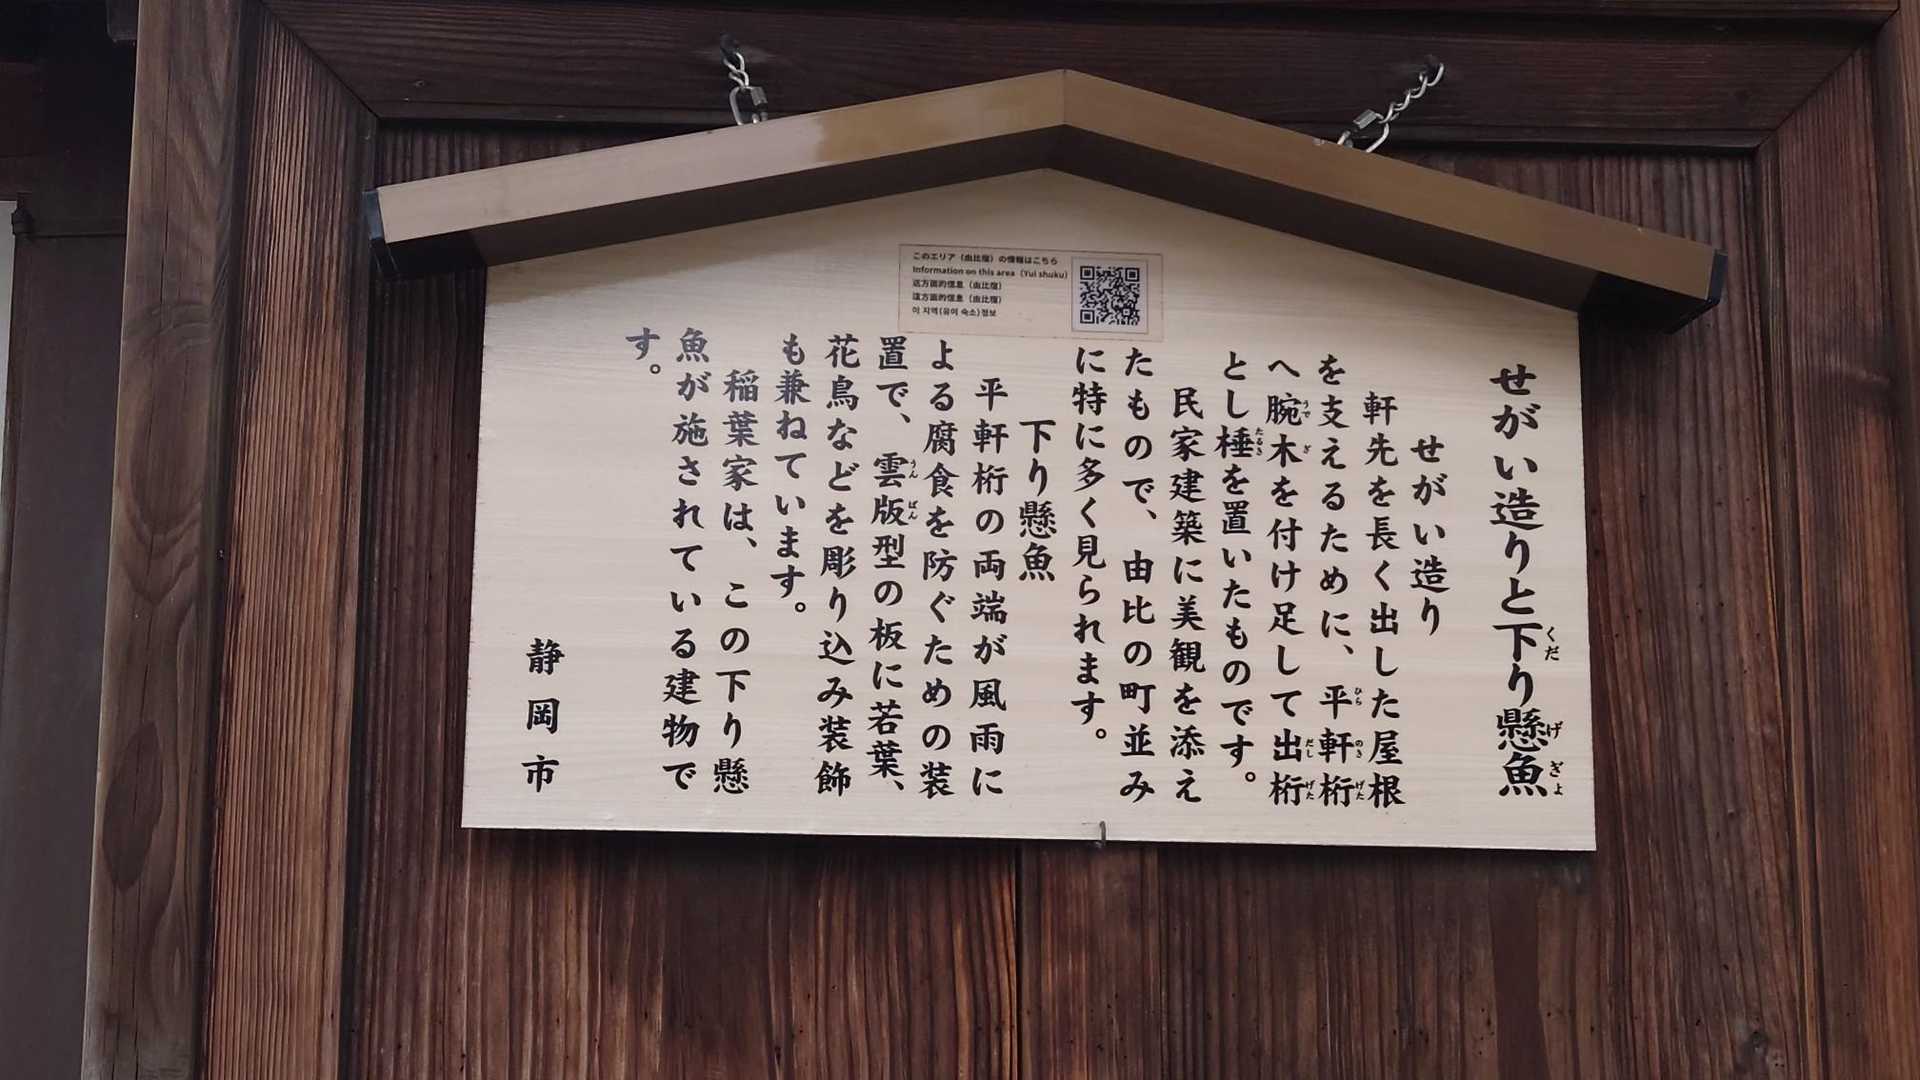 このエリア（由比宿）の情報はこちら
Information on this area（Yui shuku）
这方面的信息（由比宿）
這方面的信息（由比宿）
이 지역(유이 숙소)정보
せがい造りと下り懸魚
くだ
げぎょ
せがい造り
軒先を長く出した屋根
を支えるために、平軒桁
ひらのきげた
へ腕木を付け足して出桁
うでぎ
だしげた
とし棰を置いたものです。
たるき
民家建築に美観を添え
たもので、由比の町並み
に特に多く見られます。
下り懸魚
平軒桁の両端が風雨に
よる腐食を防ぐための装
置で、雲版型の板に若葉、
うんばん
花鳥などを彫り込み装飾
も兼ねています。
稲葉家は、この下り懸
魚が施されている建物で
す。
静岡市